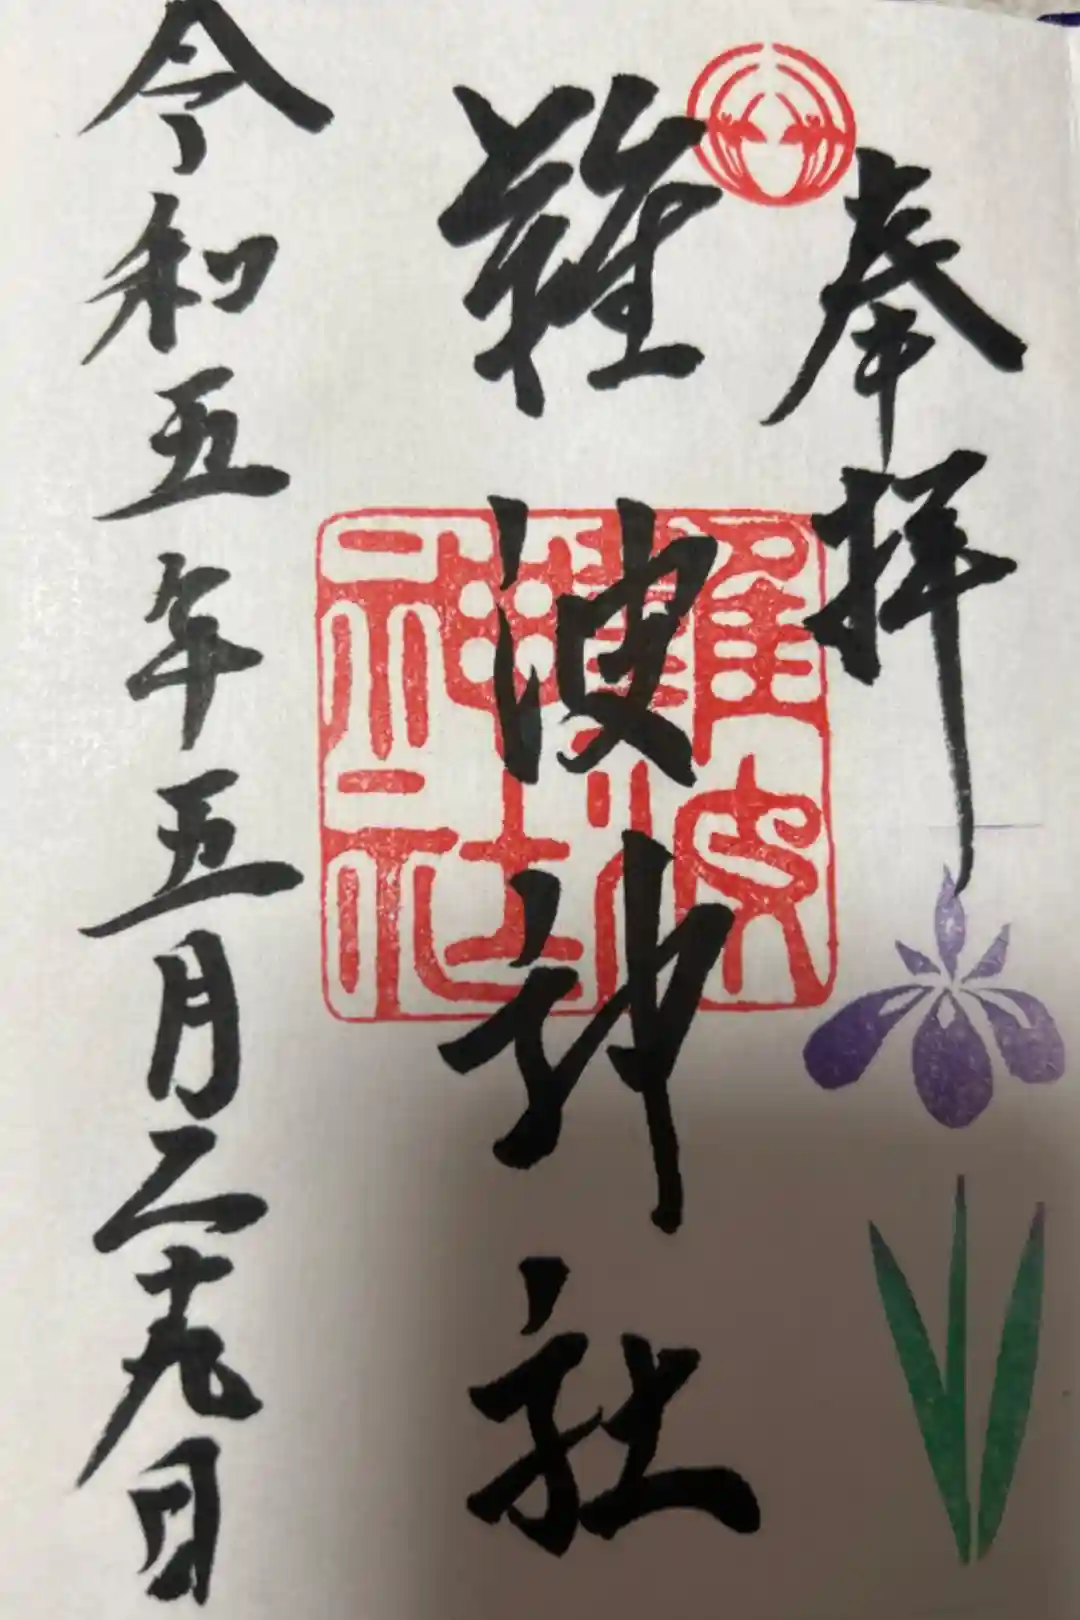 奉拝
難波神社
難波神社
令和五年五月二十九日